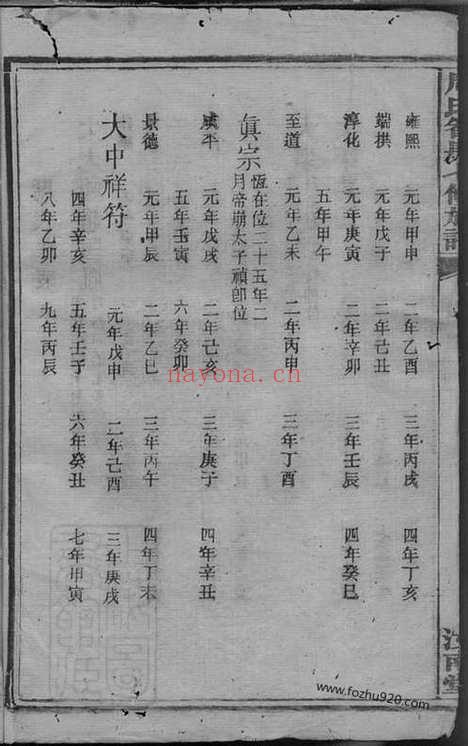 雍熙 元年甲申 二年乙酉 三年丙戌 四年丁亥
端拱 元年戊子 二年己丑
淳化 元年庚寅 二年辛卯 三年壬辰 四年癸巳
五年甲午
至道 元年乙未 二年丙申 三年丁酉
眞宗 恆在位二十五年二
月帝崩太子禎卽位
咸平 元年戊戌 二年己亥 三年庚子 四年辛丑
五年壬寅 六年癸卯
景德 元年甲辰 二年乙巳 三年丙午 四年丁未
大中祥符 元年戊申 二年己酉 三年庚戌
四年辛亥 五年壬子 六年癸丑 七年甲寅
八年乙卯 九年丙辰
nayona.cn
www.fozhu920.com